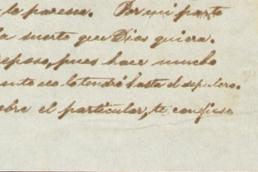 a la pareza. Por mi parte
la suerte que Dios quiera.
reposo, pues hace mucho
eso lo tendré hasta el sepulcro.
el particular, te confieso